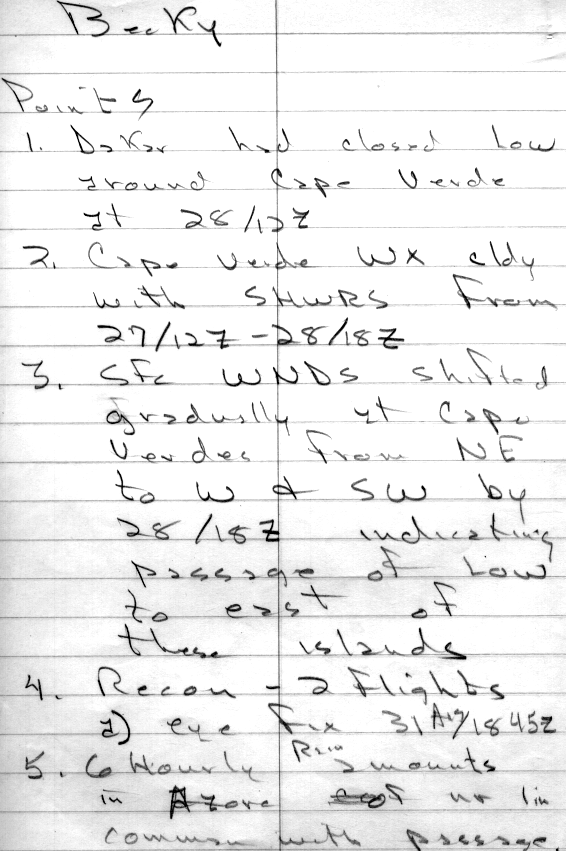 Becky
Points
1. Dakar had closed Low
around Cape Verde
at 28/12Z
2. Cape Verde WX cldy
with SHWRS from
27/12Z-28/18Z
3. Sfc WNDS shifted
gradually at Cape
Verdes from NE
to W & SW by
28/18Z indicating
passage of Low
to east of
these islands
4. Recon - 2 flights
a) eye fix 31 Aug/1845Z
5. 6 Hourly Rain amounts
in Azore of nr 1 in
common with passage